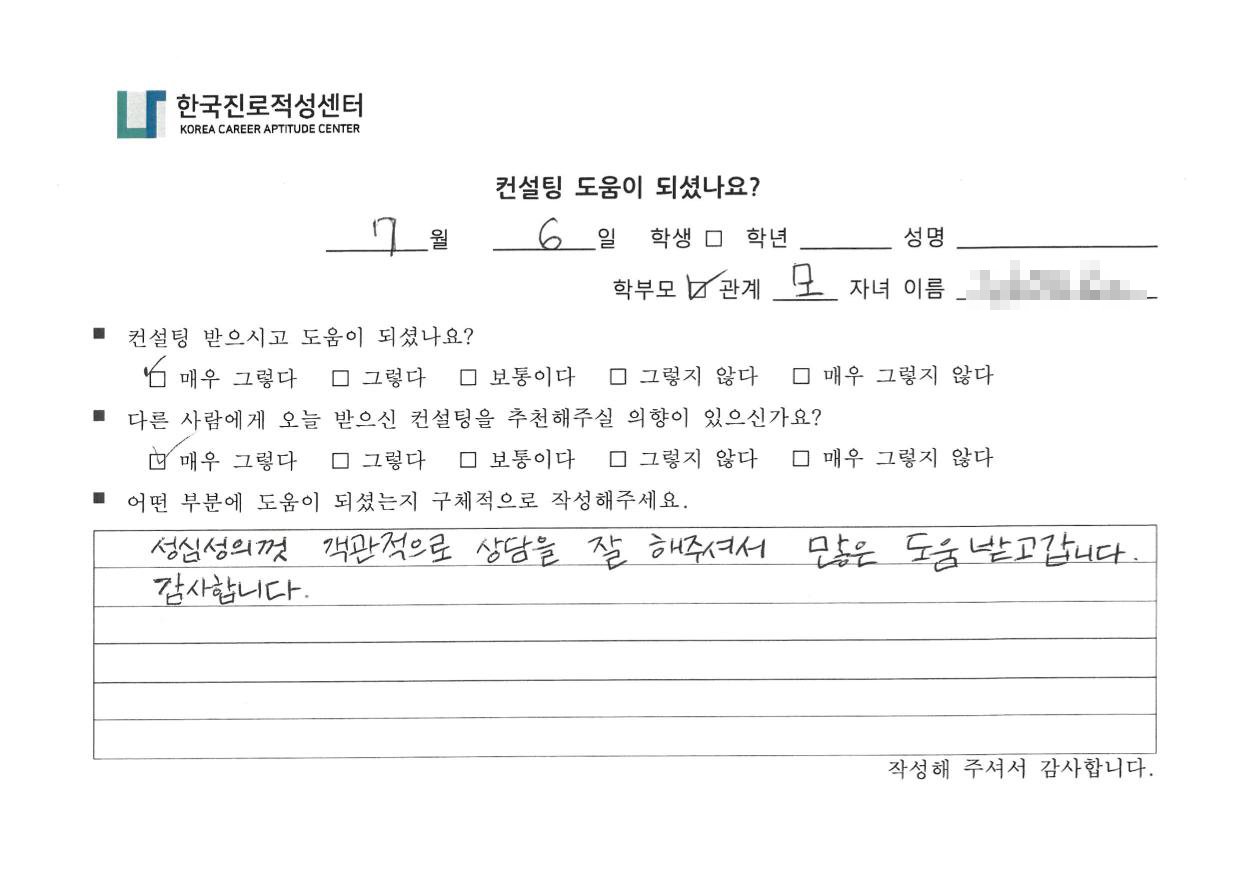 한국진로적성센터
KOREA CAREER APTITUDE CENTER
컨설팅 도움이 되셨나요?
7 월 6 일 학생 □ 학년 성명
학부모 ☑ 관계 모 자녀 이름
■ 컨설팅 받으시고 도움이 되셨나요?
☑ 매우 그렇다 □ 그렇다 □ 보통이다 □ 그렇지 않다 □ 매우 그렇지 않다
■ 다른 사람에게 오늘 받으신 컨설팅을 추천해주실 의향이 있으신가요?
☑ 매우 그렇다 □ 그렇다 □ 보통이다 □ 그렇지 않다 □ 매우 그렇지 않다
■ 어떤 부분에 도움이 되셨는지 구체적으로 작성해주세요.
성심성의껏 객관적으로 상담을 잘 해주셔서 많은 도움 받고갑니다.
감사합니다.
작성해 주셔서 감사합니다.